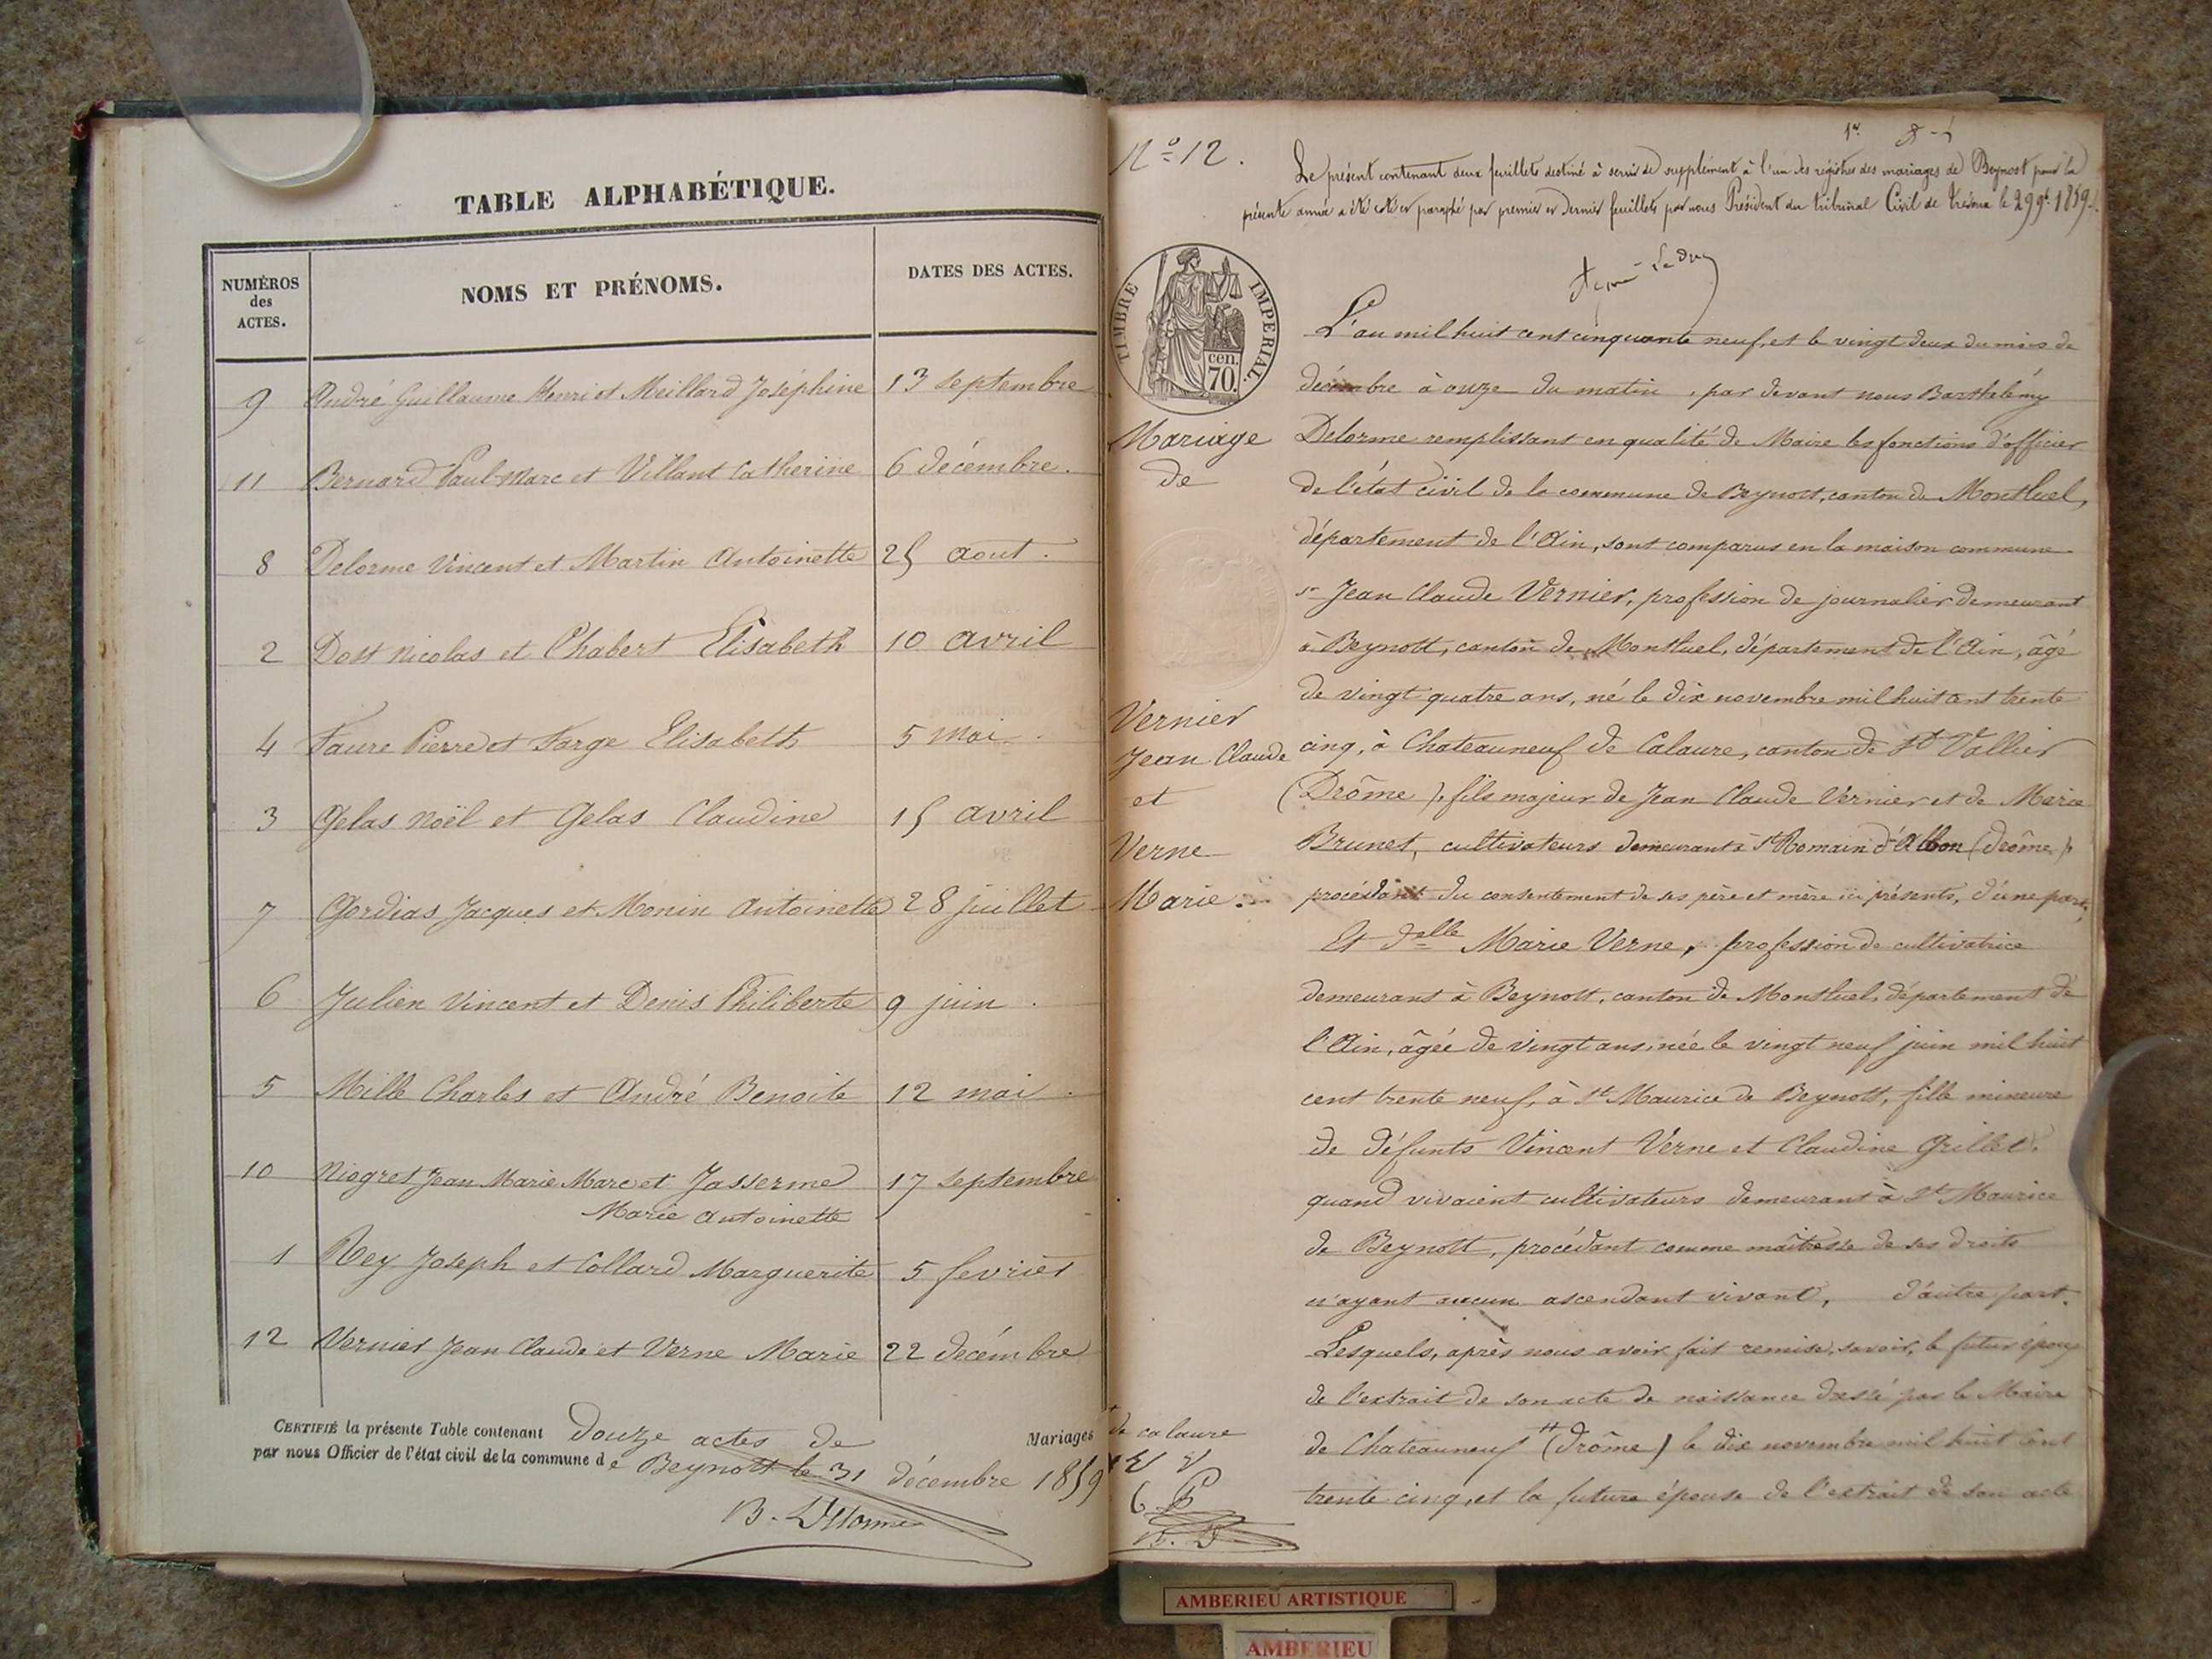 TABLE ALPHABÉTIQUE.
NUMÉROS des ACTES.
NOMS ET PRÉNOMS.
DATES DES ACTES.
9 André Guillaume Henri et Meillard Joséphine 13 septembre
11 Bernard Paul Marc et Villant Catherine 6 décembre.
8 Delorme Vincent et Martin Antoinette 25 aout.
2 Dost Nicolas et Chabert Elisabeth 10 avril
4 Faure Pierre et Farge Elisabeth 5 mai.
3 Gelas Noël et Gelas Claudine 15 avril
7 Gordias Jacques et Monin Antoinette 28 juillet
6 Julien Vincent et Denis Philiberte 9 juin.
5 Mille Charles et André Benoite 12 mai.
10 Niogret Jean Marie Marc et Jasserme 17 septembre
Marie Antoinette
1 Rey Joseph et Collard Marguerite 5 fevrier
12 Vernier Jean Claude et Verne Marie 22 décembre
CERTIFIÉ la présente Table contenant Douze actes de Mariages
par nous Officier de l'état civil de la commune de Beynost le 31 décembre 1859
B. Delorme
N° 12.
1er
Le présent contenant deux feuillets destiné à servir de supplément à l'un des régistres des mariages de Beynost pour la
présente année a été coté et paraphé par premier et dernier feuillets par nous Président du tribunal Civil de Trévoux le 29 9bre 1859.
TIMBRE IMPERIAL.
cen.
70.
Mariage
de
Vernier
Jean Claude
et
Verne
Marie.
L'an mil huit cent cinquante neuf, et le vingt deux du mois de
décembre à onze du matin, par devant nous Barthélémy
Delorme remplissant en qualité de Maire les fonctions d'officier
de l'état civil de la commune de Beynost, canton de Montluel,
département de l'Ain, sont comparus en la maison commune
sr Jean Claude Vernier, profession de journalier demeurant
à Beynost, canton de Montluel, département de l'Ain, âgé
de vingt quatre ans, né le dix novembre mil huit cent trente
cinq, à Chateauneuf de Calaure, canton de St Vallier
(Drôme), fils majeur de Jean Claude Vernier et de Marie
Brunet, cultivateurs demeurant à St Romain d'Albon (Drôme),
procédant du consentement de ses père et mère ici présents, d'une part,
Et delle Marie Verne, profession de cultivatrice
demeurant à Beynost, canton de Montluel, département de
l'Ain, âgée de vingt ans, née le vingt neuf juin mil huit
cent trente neuf, à St Maurice de Beynost, fille mineure
de défunts Vincent Verne et Claudine Grillet,
quand vivaient cultivateurs demeurant à St Maurice
de Beynost, procédant comme maîtresse de ses droits
n'ayant aucun ascendant vivant, d'autre part.
Lesquels, après nous avoir fait remise, savoir, le futur époux
de l'extrait de son acte de naissance dressé par le Maire
de Chateauneuf (Drôme) le dix novembre mil huit cent
trente cinq, et la future épouse de l'extrait de son acte
de calaure
B. D.
AMBERIEU ARTISTIQUE
AMBERIEU